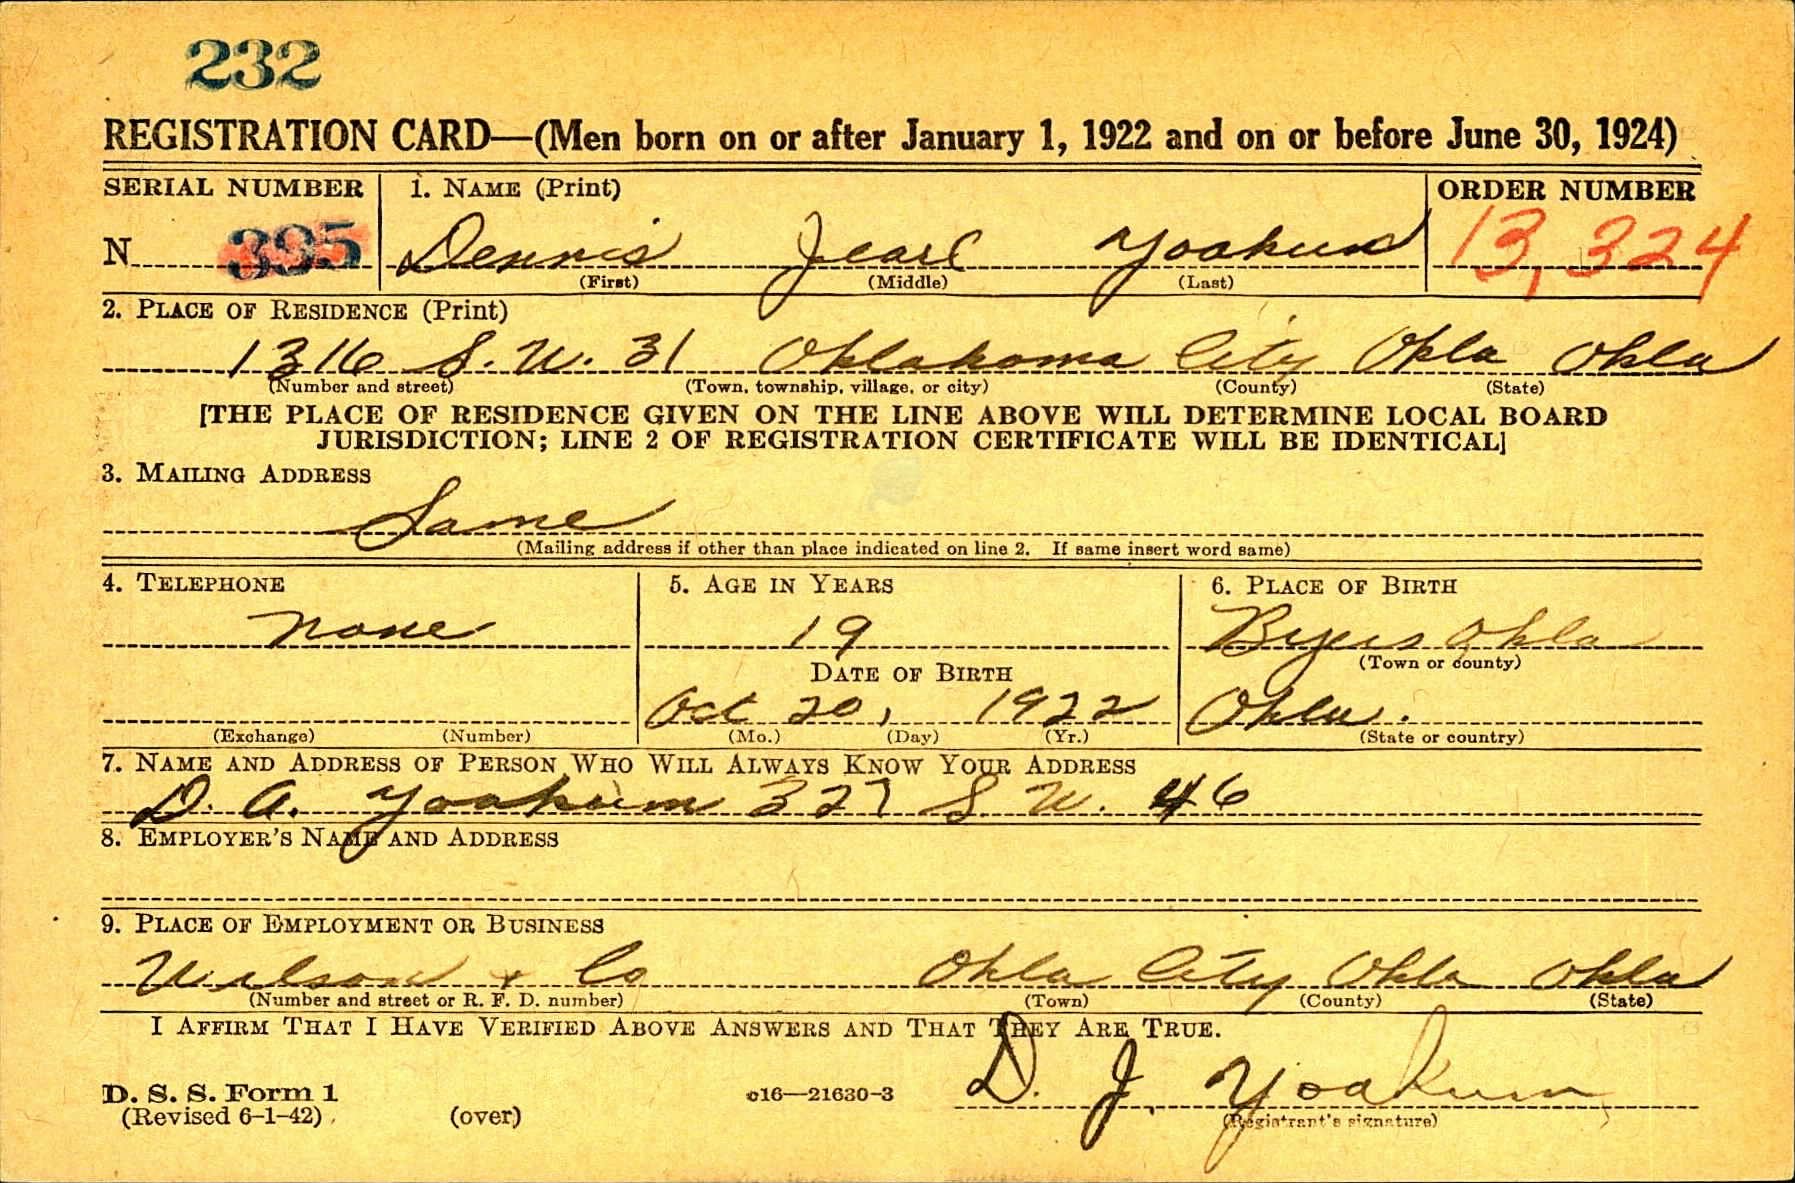 232
REGISTRATION CARD—(Men born on or after January 1, 1922 and on or before June 30, 1924)
SERIAL NUMBER 1. NAME (Print) ORDER NUMBER
N 395 Dennis Jearl Yoakum 13,324
(First) (Middle) (Last)
2. PLACE OF RESIDENCE (Print)
1316 S. W. 31 Oklahoma City Okla Okla
(Number and street) (Town, township, village, or city) (County) (State)
[THE PLACE OF RESIDENCE GIVEN ON THE LINE ABOVE WILL DETERMINE LOCAL BOARD
JURISDICTION; LINE 2 OF REGISTRATION CERTIFICATE WILL BE IDENTICAL]
3. MAILING ADDRESS
Same
(Mailing address if other than place indicated on line 2. If same insert word same)
4. TELEPHONE 5. AGE IN YEARS 6. PLACE OF BIRTH
None 19 Byers Okla
(Town or county)
DATE OF BIRTH
Oct 20, 1922 Okla.
(Exchange) (Number) (Mo.) (Day) (Yr.) (State or country)
7. NAME AND ADDRESS OF PERSON WHO WILL ALWAYS KNOW YOUR ADDRESS
D. A. Yoakum 327 S W. 46
8. EMPLOYER'S NAME AND ADDRESS
9. PLACE OF EMPLOYMENT OR BUSINESS
Wilson + Co Okla City Okla Okla
(Number and street or R. F. D. number) (Town) (County) (State)
I AFFIRM THAT I HAVE VERIFIED ABOVE ANSWERS AND THAT THEY ARE TRUE.
D. J. Yoakum
D. S. S. Form 1 c16—21630-3
(Revised 6-1-42) (over) (Registrant's signature)